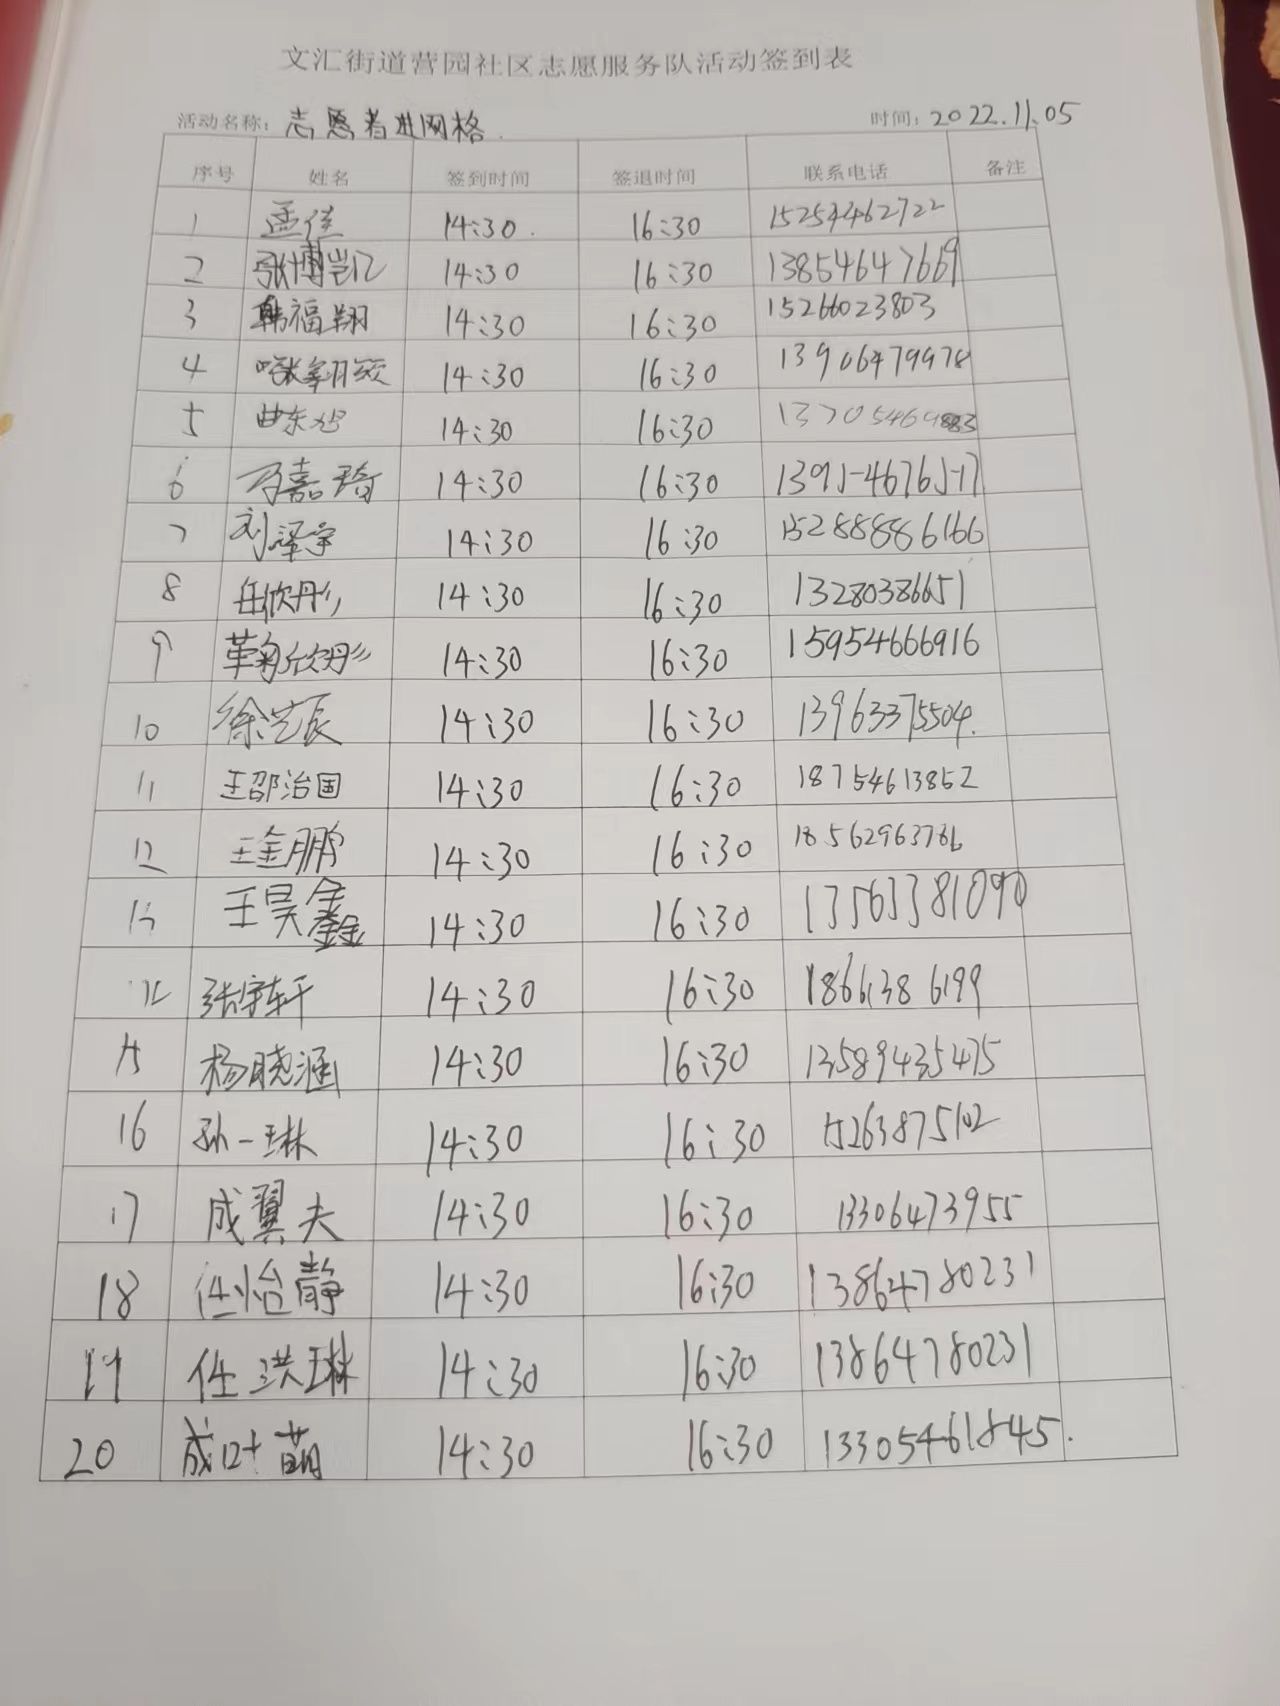 文汇街道营园社区志愿服务队活动签到表
活动名称：志愿者进网格. 时间：2022.11.05
序号 姓名 签到时间 签退时间 联系电话 备注
1 孟佳 14:30 16:30 15254462722
2 张博岂亿 14:30 16:30 13854647669
3 韩福翔 14:30 16:30 15266023803
4 14:30 16:30 13906479978
5 曲东 14:30 16:30
6 万嘉琦 14:30 16:30
7 刘泽宇 14:30 16:30 15288886166
8 任欣彤 14:30 16:30 13280386651
9 欣彤 14:30 16:30 15954666916
10 徐艺辰 14:30 16:30 13963375504.
11 王邵治国 14:30 16:30 18754613852
12 王金鹏 14:30 16:30 18562963786
13 王昊鑫 14:30 16:30 13563381090
14 张宇轩 14:30 16:30 18661386199
15 杨晓涵 14:30 16:30 13589435475
16 孙一琳 14:30 16:30 15263875102
17 成翼夫 14:30 16:30 13306473955
18 任怡静 14:30 16:30 13864780231
19 任洪琳 14:30 16:30 13864780231
20 成叶萌 14:30 16:30 13305461845.